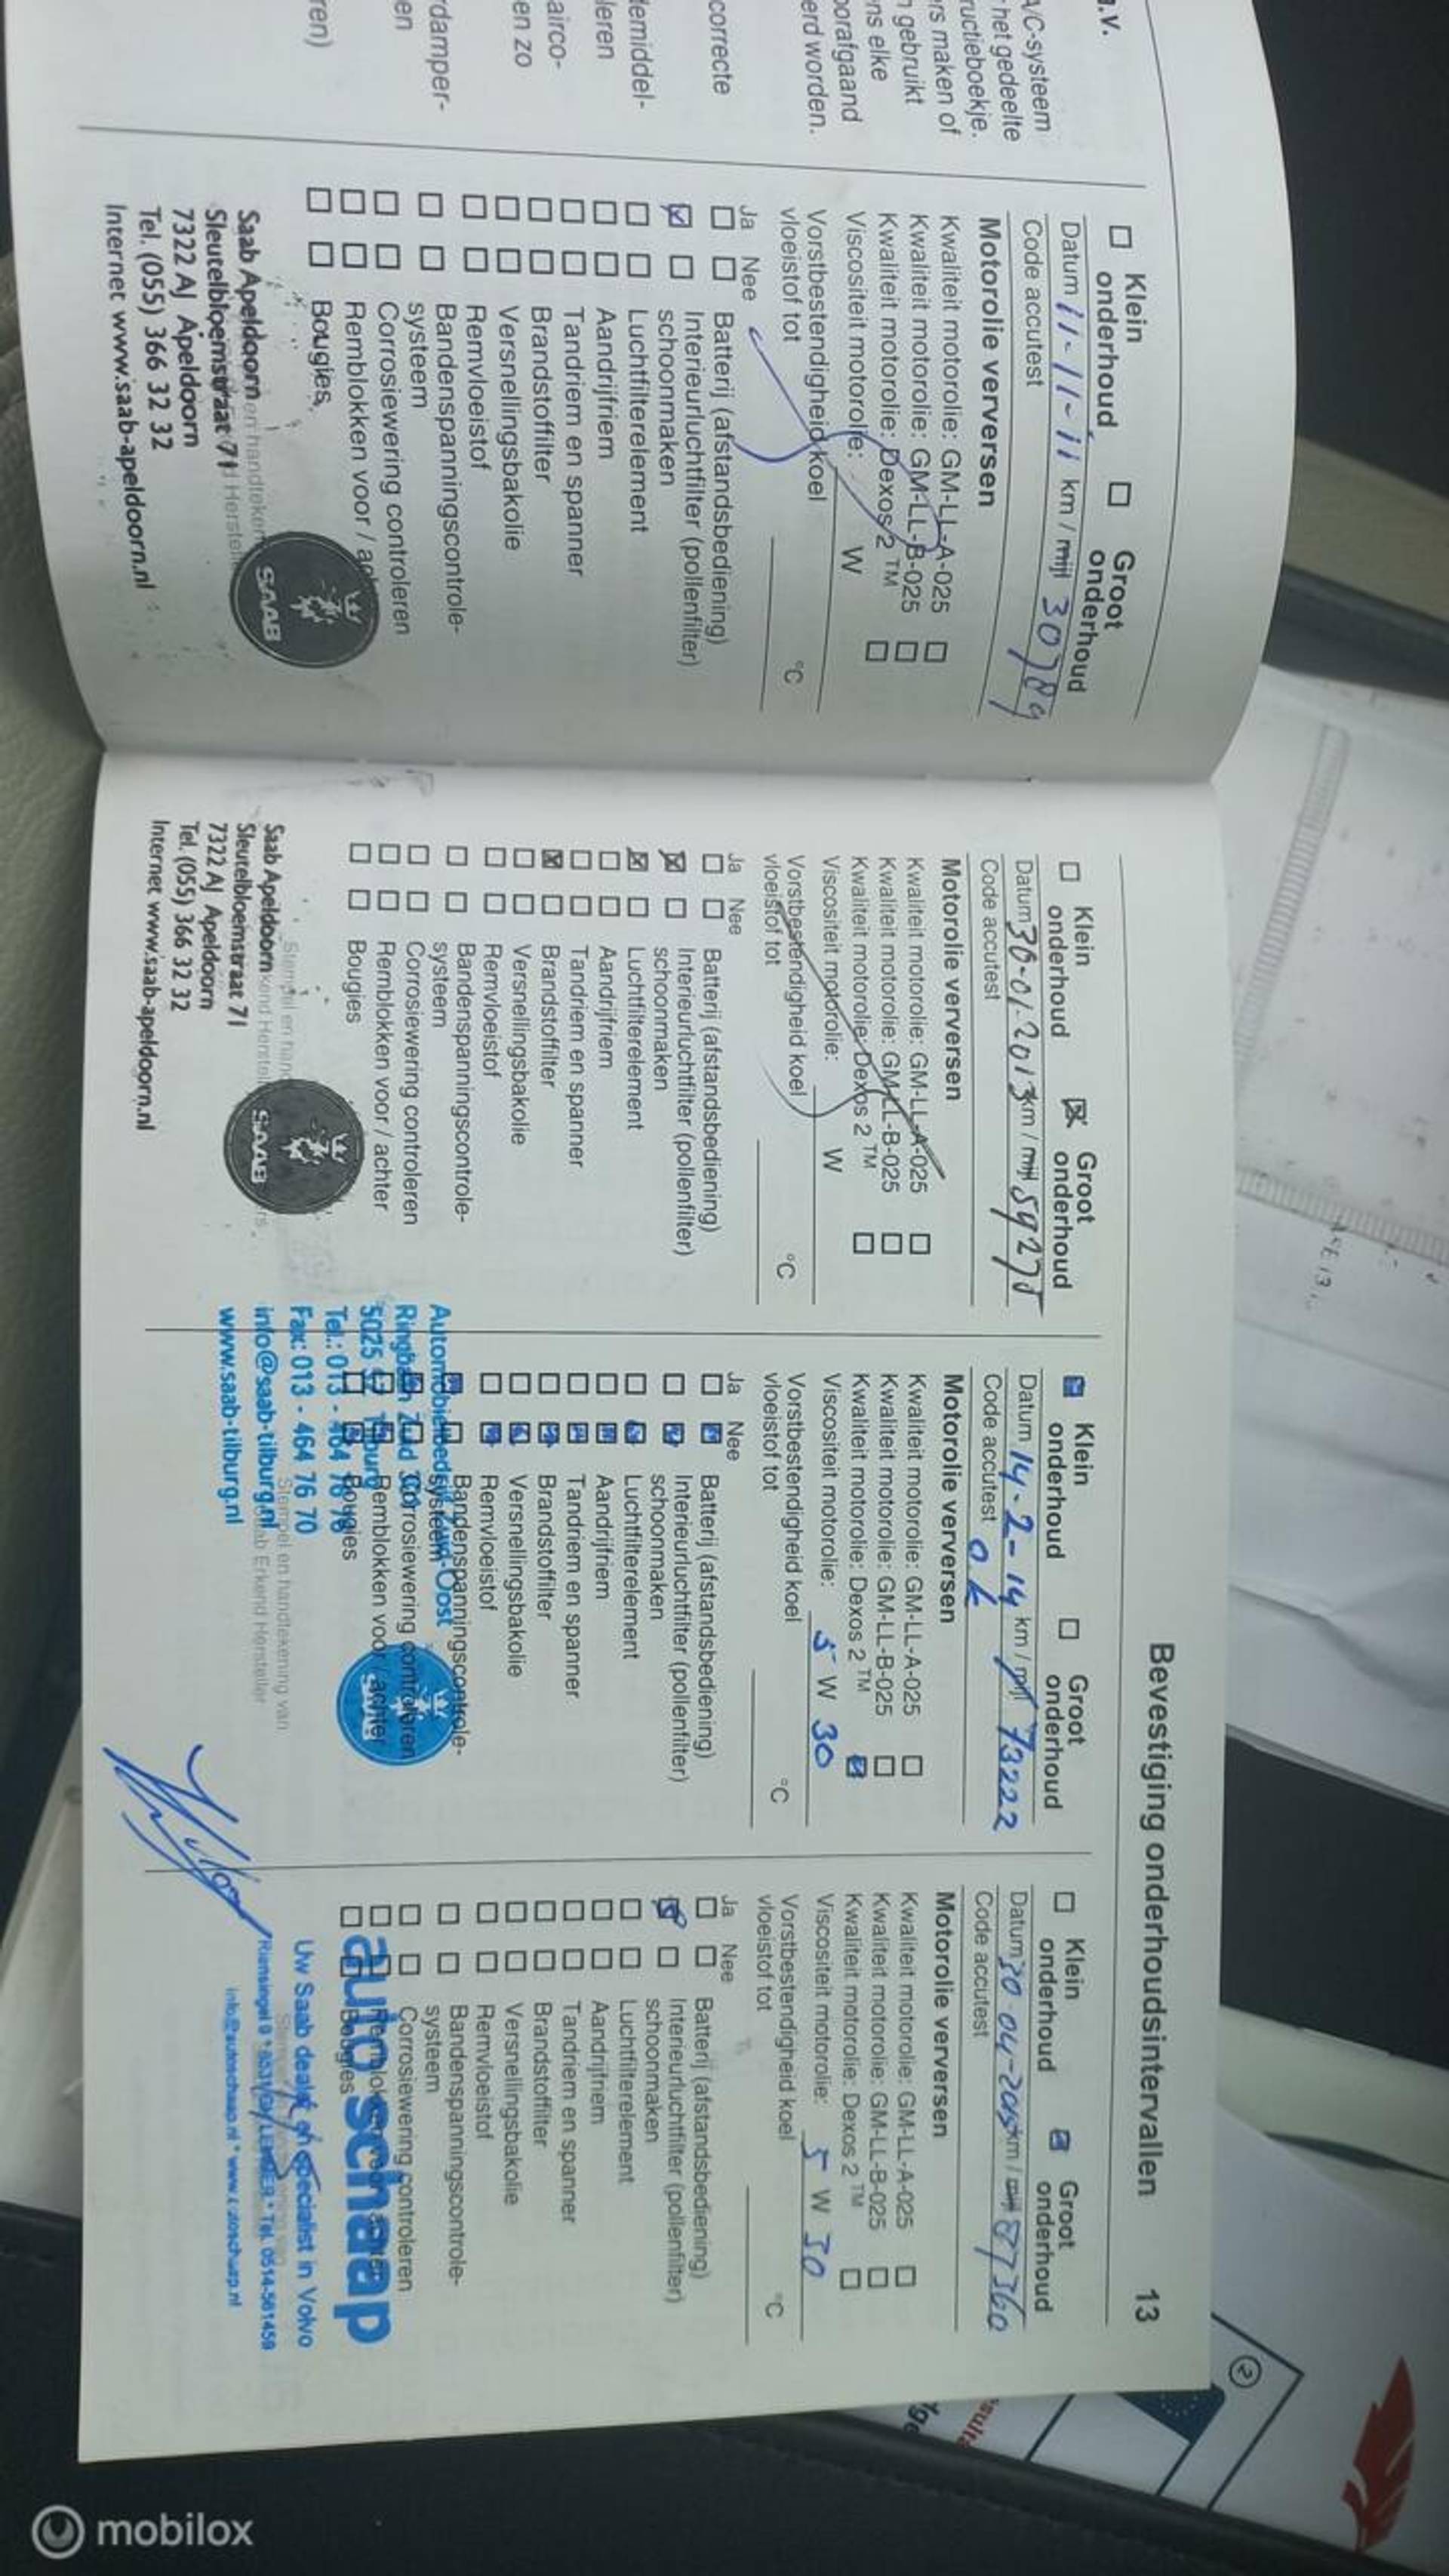 .v.
A/C-systeem
het gedeelte
ructieboekje.
rs maken of
n gebruikt
ns elke
oorafgaand
erd worden.
correcte
temiddel-
leren
airco-
en zo
rdamper-
en
ren)
Klein onderhoud
Groot onderhoud
Datum 11-11-11 km / mijl 30789
Code accutest
Motorolie verversen
Kwaliteit motorolie: GM-LL-A-025
Kwaliteit motorolie: GM-LL-B-025
Kwaliteit motorolie: Dexos 2 TM
Viscositeit motorolie: W
Vorstbestendigheid koel
vloeistof tot °C
Ja Nee
Batterij (afstandsbediening)
Interieurluchtfilter (pollenfilter)
schoonmaken
Luchtfilterelement
Aandrijfriem
Tandriem en spanner
Brandstoffilter
Versnellingsbakolie
Remvloeistof
Bandenspanningscontrole-
systeem
Corrosiewering controleren
Remblokken voor /
Bougies
Saab Apeldoorn
Sleutelbloemstraat 71
7322 AJ Apeldoorn
Tel. (055) 366 32 32
Internet www.saab-apeldoorn.nl
SAAB
Bevestiging onderhoudsintervallen 13
Klein onderhoud
Groot onderhoud
Datum 30-01-2013 km / mijl 59275
Code accutest
Motorolie verversen
Kwaliteit motorolie: GM-LL-A-025
Kwaliteit motorolie: GM-LL-B-025
Kwaliteit motorolie: Dexos 2 TM
Viscositeit motorolie: W
Vorstbestendigheid koel
vloeistof tot °C
Ja Nee
Batterij (afstandsbediening)
Interieurluchtfilter (pollenfilter)
schoonmaken
Luchtfilterelement
Aandrijfriem
Tandriem en spanner
Brandstoffilter
Versnellingsbakolie
Remvloeistof
Bandenspanningscontrole-
systeem
Corrosiewering controleren
Remblokken voor / achter
Bougies
Saab Apeldoorn
Sleutelbloemstraat 71
7322 AJ Apeldoorn
Tel. (055) 366 32 32
Internet www.saab-apeldoorn.nl
SAAB
Klein onderhoud
Groot onderhoud
Datum 14-2-14 km / mijl 73222
Code accutest ok
Motorolie verversen
Kwaliteit motorolie: GM-LL-A-025
Kwaliteit motorolie: GM-LL-B-025
Kwaliteit motorolie: Dexos 2 TM
Viscositeit motorolie: 5 W 30
Vorstbestendigheid koel
vloeistof tot °C
Ja Nee
Batterij (afstandsbediening)
Interieurluchtfilter (pollenfilter)
schoonmaken
Luchtfilterelement
Aandrijfriem
Tandriem en spanner
Brandstoffilter
Versnellingsbakolie
Remvloeistof
Bandenspanningscontrole-
systeem
Corrosiewering controleren
Remblokken voor / achter
Bougies
Tel.: 013 - 464 76 76
Fax: 013 - 464 76 70
info@saab-tilburg.nl
www.saab-tilburg.nl
Stempel en handtekening van
Saab Erkend Hersteller
Klein onderhoud
Groot onderhoud
Datum 30-04-2015 km / mijl 87360
Code accutest
Motorolie verversen
Kwaliteit motorolie: GM-LL-A-025
Kwaliteit motorolie: GM-LL-B-025
Kwaliteit motorolie: Dexos 2 TM
Viscositeit motorolie: 5 W 30
Vorstbestendigheid koel
vloeistof tot °C
Ja Nee
Batterij (afstandsbediening)
Interieurluchtfilter (pollenfilter)
schoonmaken
Luchtfilterelement
Aandrijfriem
Tandriem en spanner
Brandstoffilter
Versnellingsbakolie
Remvloeistof
Bandenspanningscontrole-
systeem
Corrosiewering controleren
Bougies
auto schaap
Uw Saab dealer en specialist in Volvo
Tel. 0514-561459
info@autoschaap.nl * www.autoschaap.nl
2
mobilox